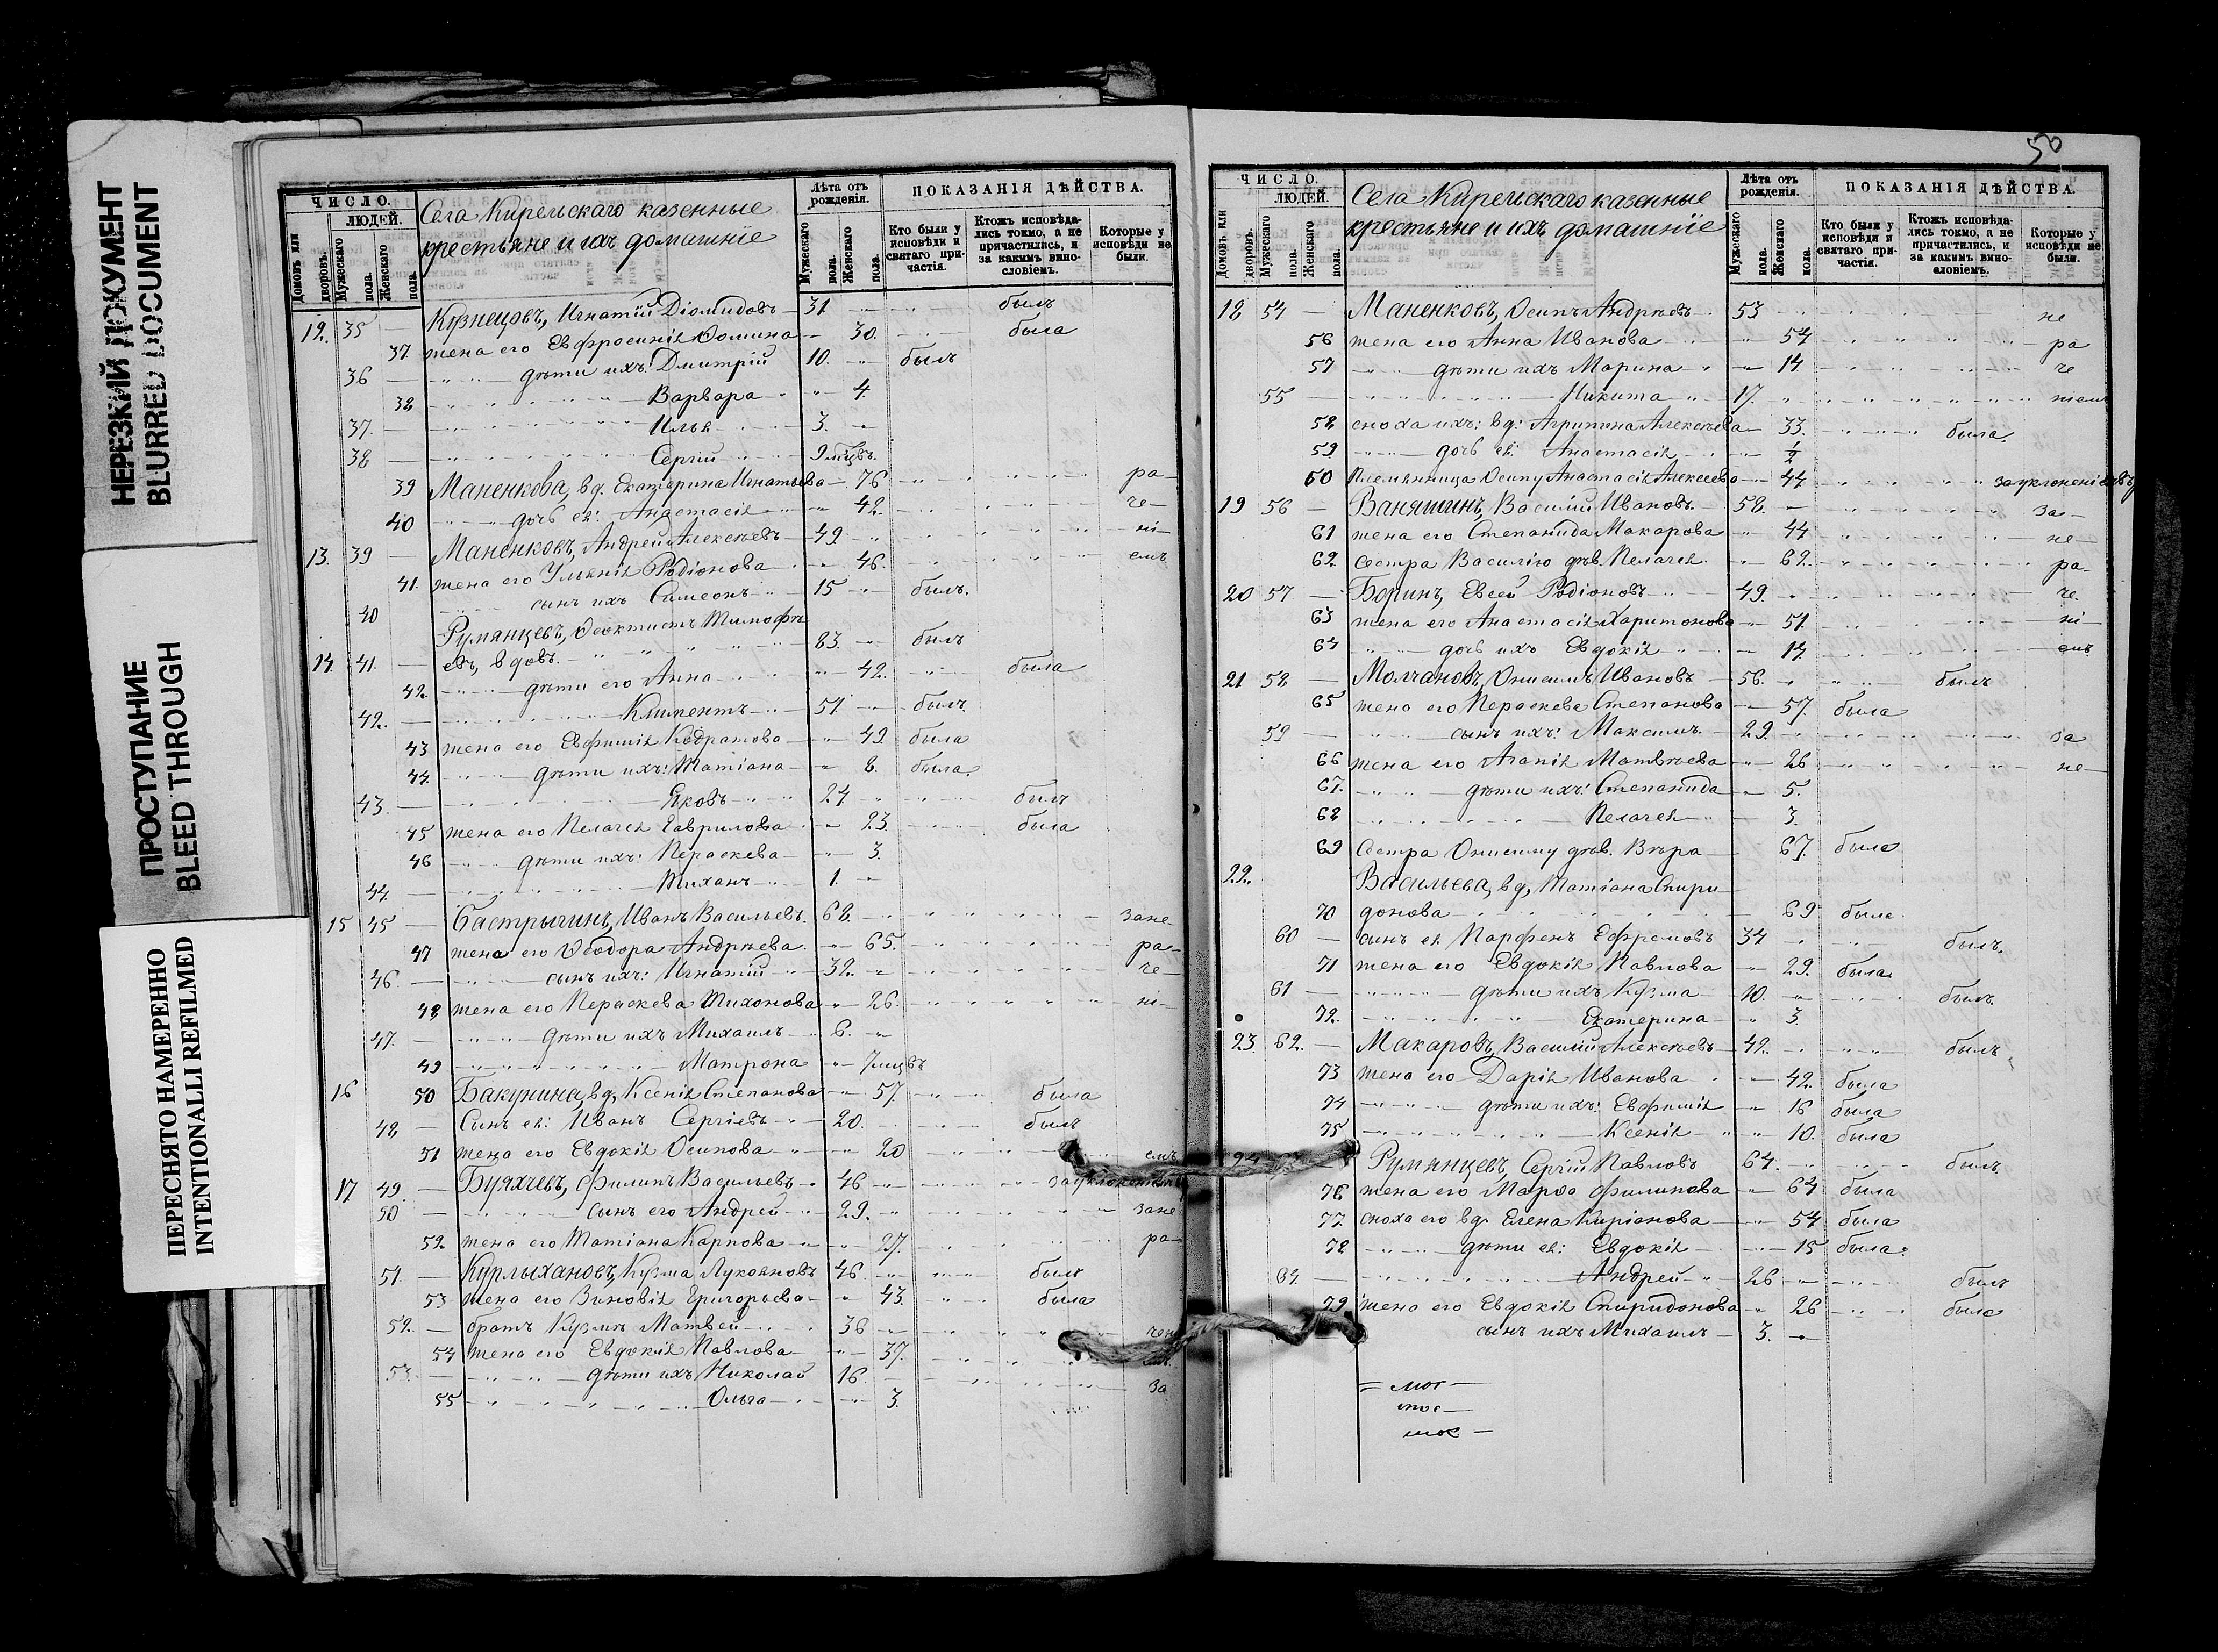 НЕРЕЗКИЙ ДОКУМЕНТ
BLURRED DOCUMENT
ПРОСТУПАНИЕ
BLEED THROUGH
ПЕРЕСНЯТО НАМЕРЕННО
INTENTIONALLI REFILMED
ЧИСЛО.
ЛЮДЕЙ.
Домовъ или дворовъ.
Мужескаго пола.
Женскаго пола.
Села Кирельскаго казенные
крестьяне и ихъ домашніе
Лѣта отъ рожденія.
Мужескаго пола.
Женскаго пола.
ПОКАЗАНІЯ ДѢЙСТВА.
Кто были у исповѣди и святаго причастія.
Ктожъ исповѣдались токмо, а не причастились, и за какимъ винословіемъ.
Которые у исповѣди не были.
12. 35 — Кузнецовъ, Игнатій Діомидовъ 31 былъ
37 жена его Евфросинія Фомина 30. была
36 — дѣти ихъ: Дмитрій 10. былъ
38 Варвара 4.
37. — Илья 3.
38 — Сергій 9 мцвъ.
39 Маненкова, вд. Екатерина Игнатьева 76 ра-
40 дочь ея: Анастасія 42. че-
13. 39 — Маненковъ, Андрей Алексѣевъ 49. ні-
41. жена его Ульянія Родіонова 46. емъ
40 сынъ ихъ Симеонъ 15 былъ.
Румянцевъ, Феоктистъ Тимофѣ
14 41. — евъ, вдовъ. 83. былъ
42. дѣти его Анна 42. была
42. — Климентъ 51 былъ
43 жена его Евфимія Кодратова 49 была
44. дѣти ихъ: Татіана 8. была.
43. — Яковъ 24 былъ
45 жена его Пелагея Гаврилова 23. была
46 дѣти ихъ: Параскева 3.
44. — Тиханъ 1.
15 45 — Бастрыгинъ, Иванъ Васильевъ. 68. зане
47 жена его Ѳеодора Андрѣева. 65. ра-
46. — сынъ ихъ: Игнатій 32. че-
48 жена его Параскева Тихонова 26. ні-
47. — дѣти ихъ Михаилъ 6.
49 Матрона 7 мцвъ
16 50 Бакунина, вд. Ксенія Степанова 57. была
48 — Сынъ ея: Иванъ Сергіевъ 20. былъ
51 жена его Евдокія Осипова 20 емъ
17 49. — Буяхчевъ, Филипъ Васильевъ 46
50 — сынъ его Андрей 29. зане
52. жена его Татіана Карпова 27. ра-
51. — Курлыхановъ, Кузма Лукояновъ 46. былъ
53 жена его Зиновія Григорьева 43. была
52. — братъ Кузмѣ Матвей 36
54 жена его Евдокія Павлова 37.
53. — дѣти ихъ Николай 16. за
55 Ольга 3.
50
ЧИСЛО.
ЛЮДЕЙ.
Домовъ или дворовъ.
Мужескаго пола.
Женскаго пола.
Села Кирельскаго казенные
крестьяне и ихъ домашніе
Лѣта отъ рожденія.
Мужескаго пола.
Женскаго пола.
ПОКАЗАНІЯ ДѢЙСТВА.
Кто были у исповѣди и святаго причастія.
Ктожъ исповѣдались токмо, а не причастились, и за какимъ винословіемъ.
Которые у исповѣди не были.
18 54 — Маненковъ, Осипъ Андрѣевъ 53 не
56 жена его Анна Иванова 54 ра
57 дѣти ихъ Марина 14 че
55 — Никита 17. ніемъ
58 сноха ихъ: вд: Агрипина Алексѣева 33. была
59 дочь ея: Анастасія ½
60 племянница Осипу Анастасія Алексеева 44
19 56 — Ваняшинъ, Василій Ивановъ 58. за-
61 жена его Степанида Макарова 44 не-
62 сестра Василію дѣв. Пелагея 62. ра-
20 57 — Боринъ, Евсей Родіоновъ 49. че.
63 жена его Анастасія Харитонова 51. ні-
64 дочь ихъ Евдокія 14. емъ
21 58 — Молчановъ, Онисимъ Ивановъ 56. былъ
65 жена его Параскева Степанова 57. была
59 — сынъ ихъ: Максимъ 29. за
66 жена его Агапія Матвѣева 26 не-
67. дѣти ихъ: Степанида 5.
68 Пелагея 3.
69 сестра Онисиму дѣв. Вѣра 67. была
22. Васильева, вд, Татіана Спири
70 донова 69 была.
60 — сынъ ея Парфенъ Ефремовъ 34 былъ.
71 жена его Евдокія Павлова 29. была.
61 — дѣти ихъ Кузма 10. былъ.
72. Екатерина 3.
23. 62. — Макаровъ, Василій Алексѣевъ 42. былъ
73 жена его Дарія Иванова 42. была
74 дѣти ихъ: Евфимія 16 была
75 Ксенія 10. была
24 Румянцевъ, Сергій Павловъ 64. былъ
76 жена его Марѳа Филипова 64 была
77. сноха его вд. Елена Киріанова 54 была
78 дѣти ея: Евдокія 15 была.
64. — Андрей 26 былъ
79 жена его Евдокія Спиридонова 26 была
сынъ ихъ Михаилъ 3.